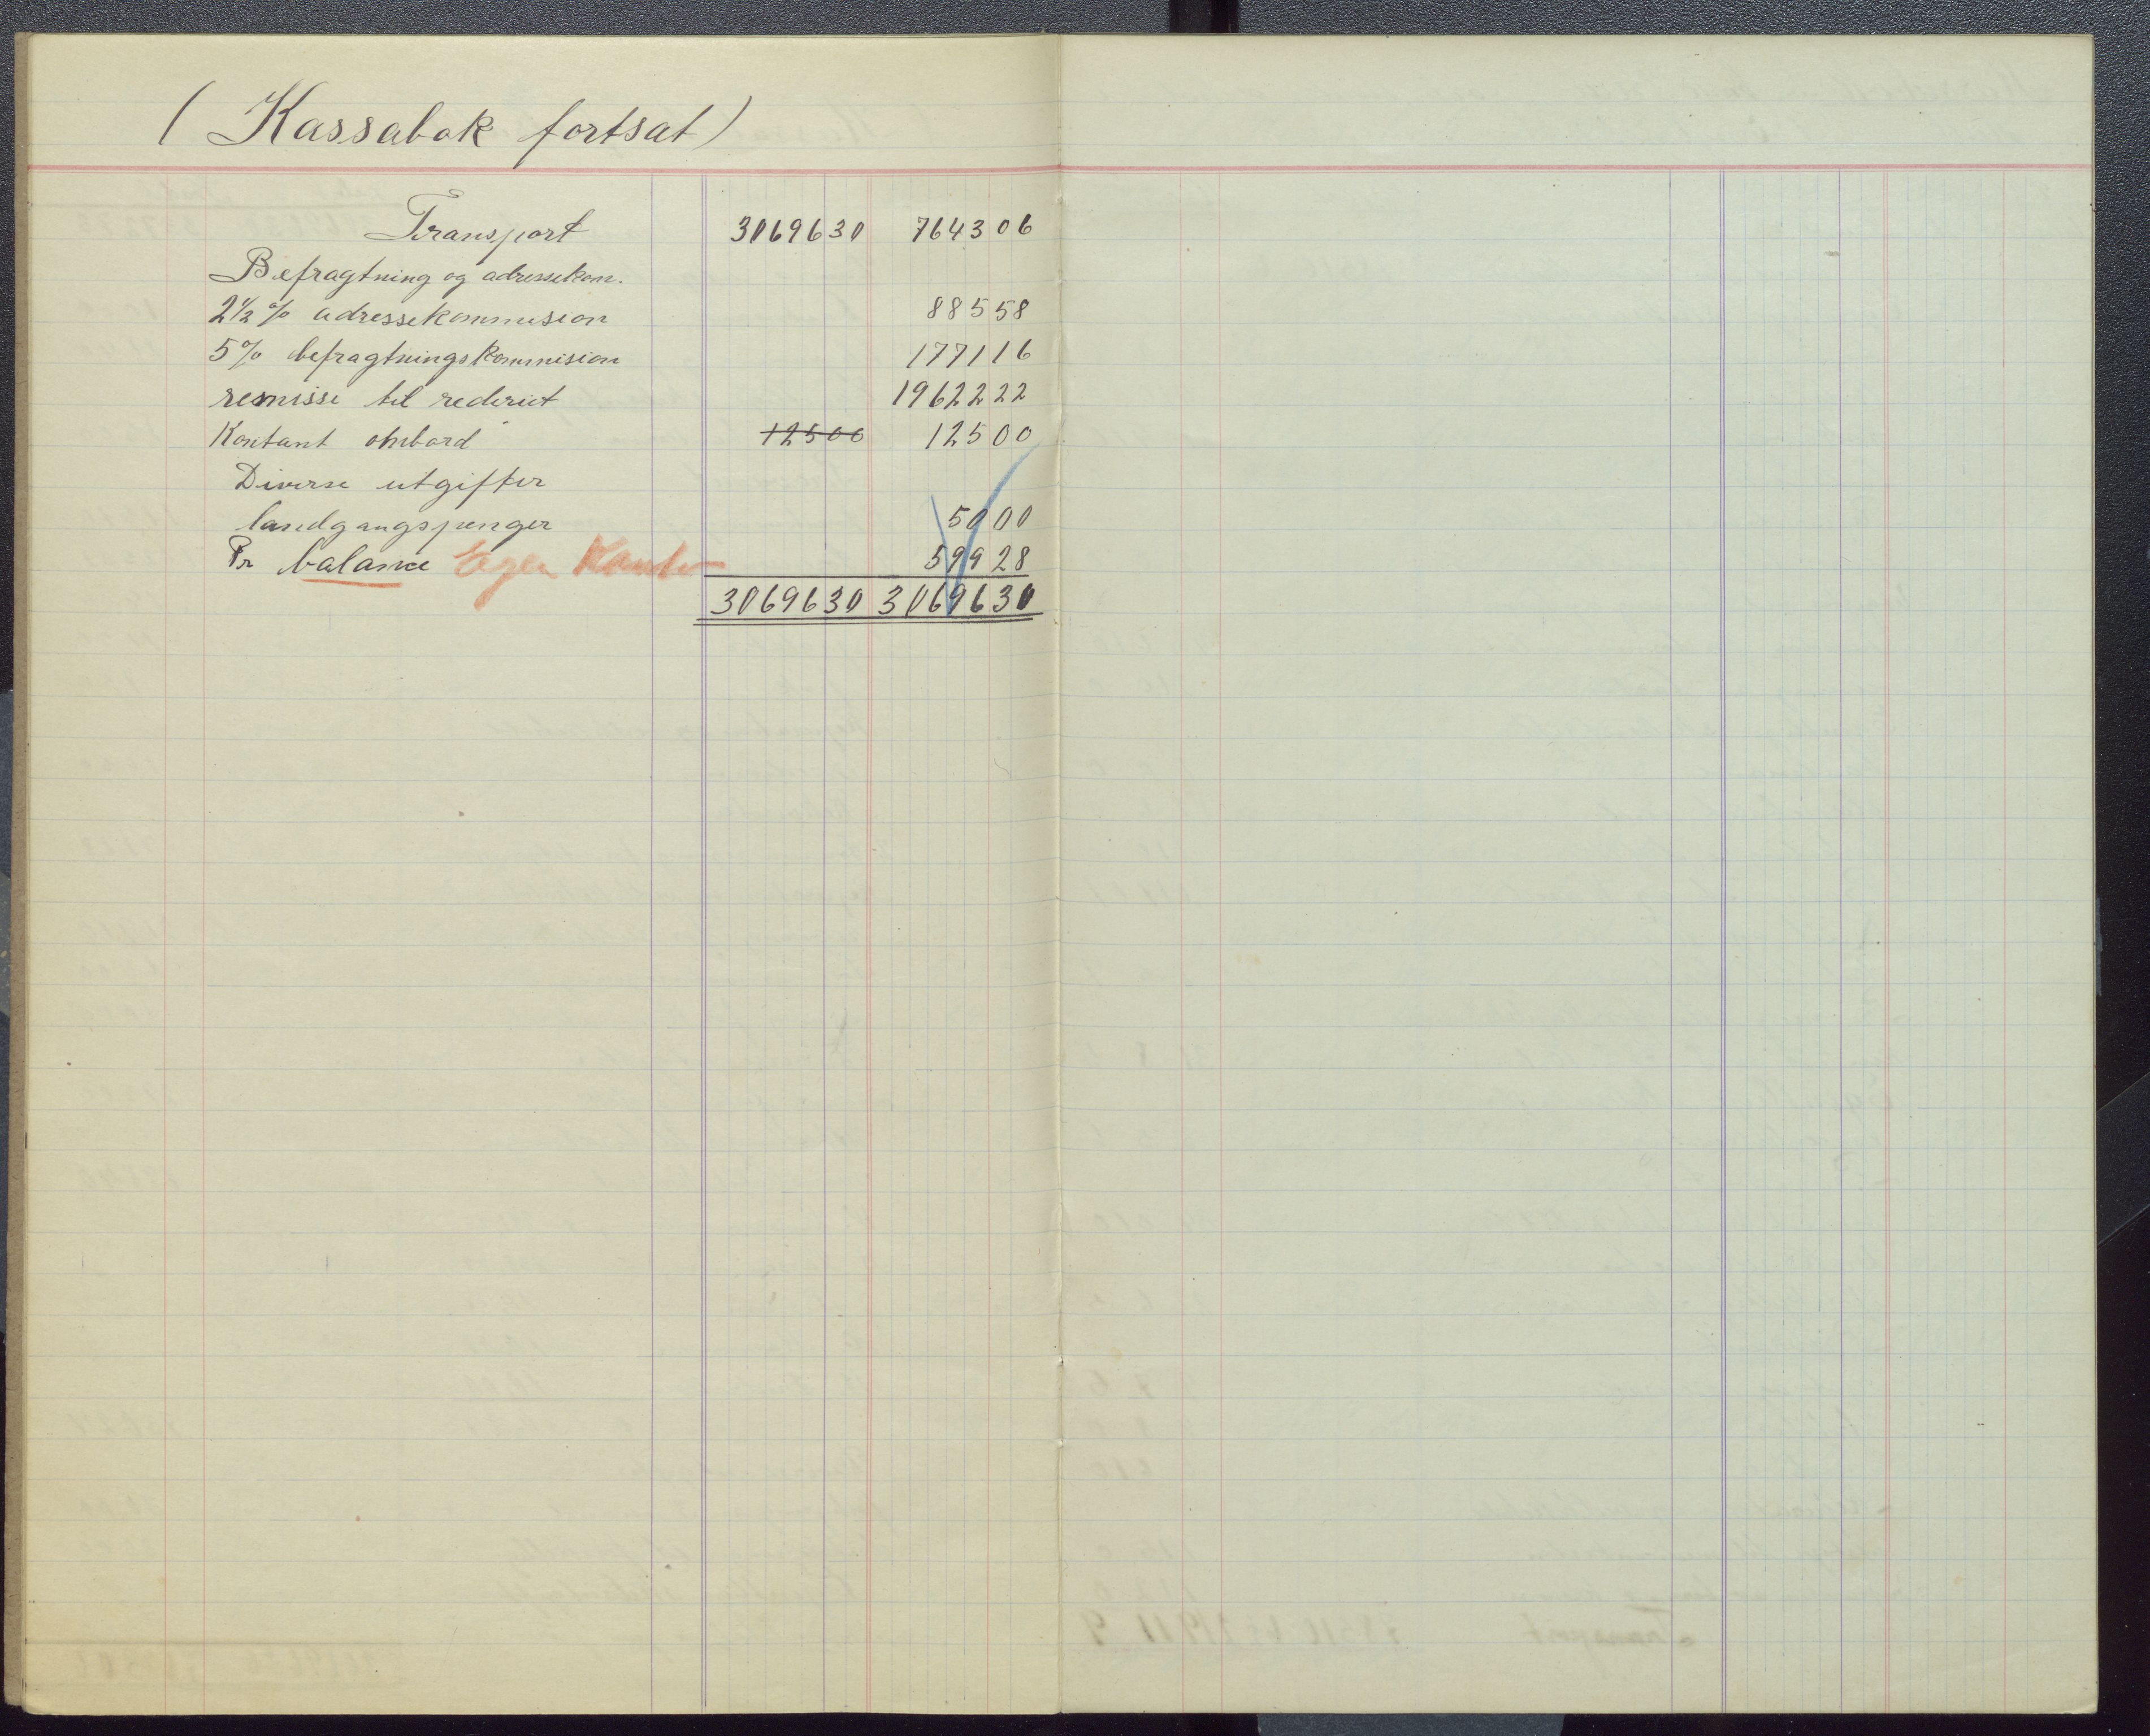 ( Kassabok fortsat )
Transport 3069630 764306
Befragtning og adressekom.
2½% adressekommision 88558
5% befragtningskommision 177116
remisse til rederiet 1962222
Kontant ombord 12500 12500
Diverse utgifter
landgangspenger 5000
Pr balance Egen Konto 59928
3069630 3069630